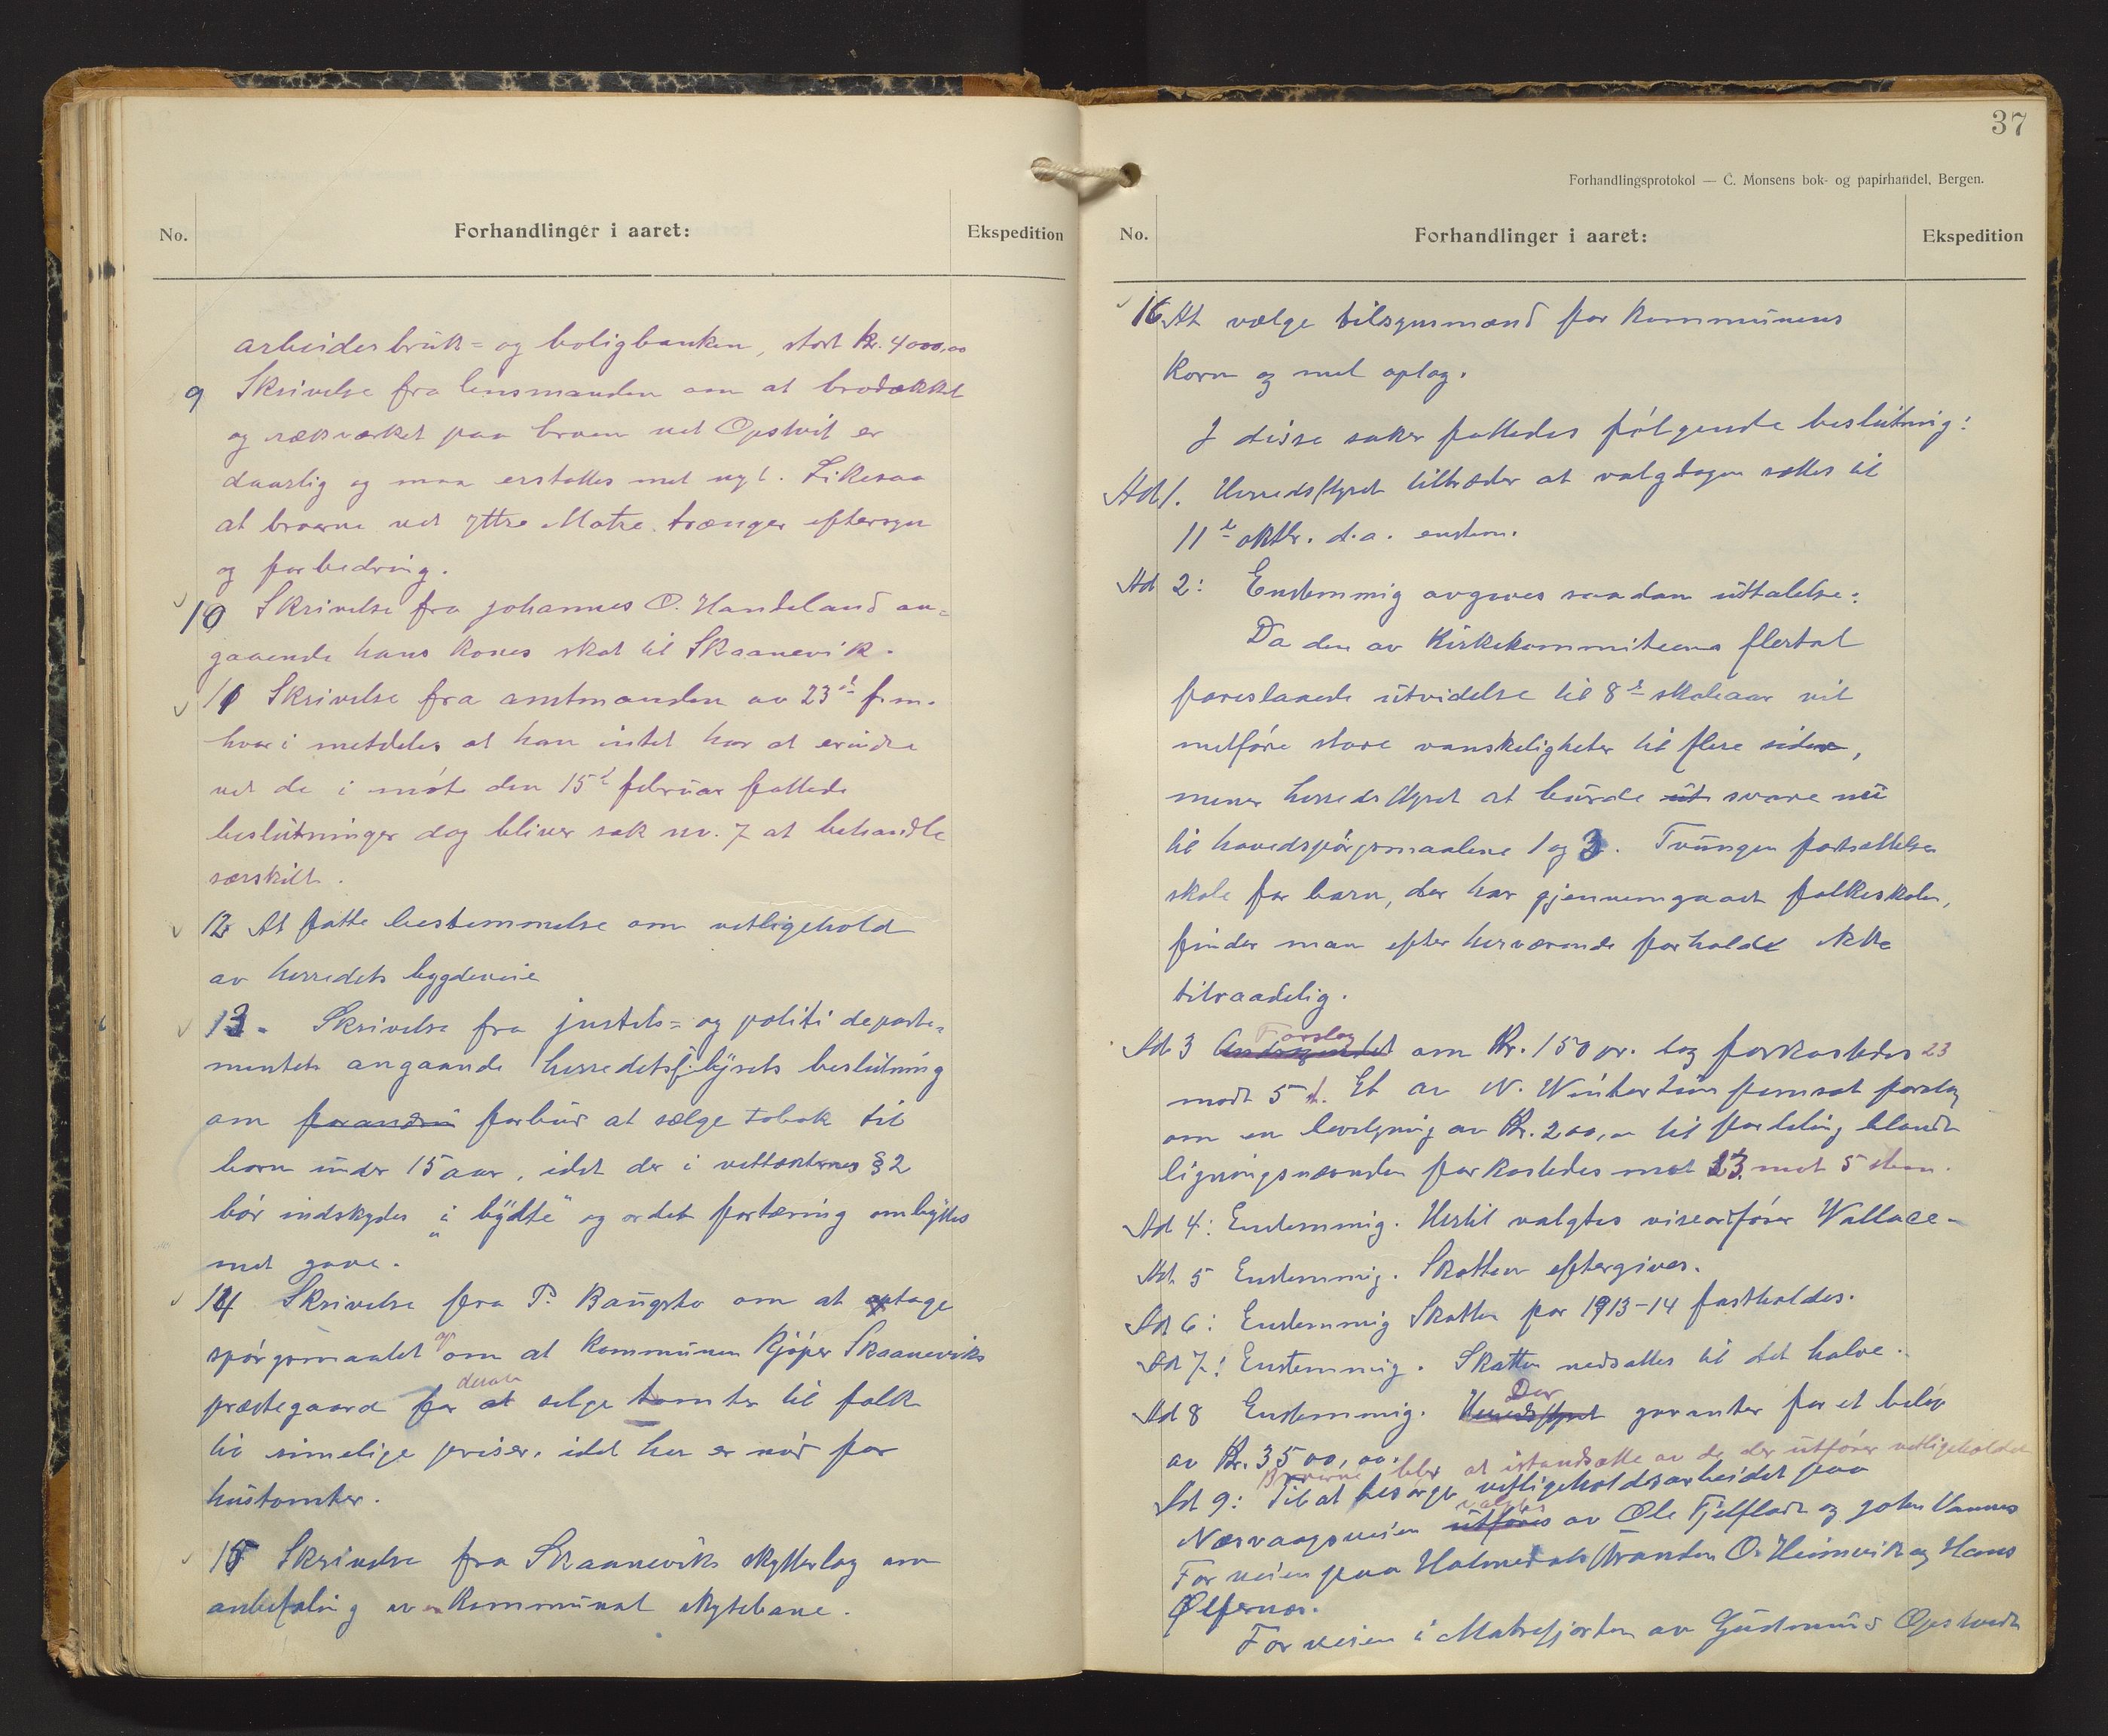 No.
Forhandlinger i aaret:
Ekspedition
arbeiderbruk- og boligbanken, stort kr. 4000,00
9 Skrivelse fra lensmanden om at brodækket
og rækværket paa broen ved Opstvit er
daarlig og maa erstattes med nyt. Likesaa
at broerne ved yttre Matre trænger eftersyn
og forbedring.
10 Skrivelse fra Johannes O. Handeland an-
gaaende hans kones skat til Skaanevik.
11 Skrivelse fra amtmanden av 23de f.m.
hvori meddeles at han intet har at erindre
ved de i møte den 15de februar fattede
beslutninger dog bliver sak nr. 7 at behandle
særskilt.
12 At fatte bestemmelse om vedligehold
av herredets bygdeveie
13. Skrivelse fra justits- og politi departe-
mentets angaaende herredstyrets beslutning
om forandrin forbud at sælge tobak til
born under 15 aar, idet der i vedtækternes § 2
bør indskydes "i bydte" og ordet fortæring ombyttes
med gave.
14 Skrivelse fra P. Baugsto om at optage
spørgsmaalet op om at kommunen kjøper Skaaneviks
præstegaard for at derav selge tomter til folk
til rimelige priser, idet her er nød for
hustomter.
15 Skrivelse fra Skaaneviks skytterlag om
anbefaling av kommunal skytebane.
37
Forhandlingsprotokol — C. Monsens bok- og papirhandel, Bergen.
No.
Forhandlinger i aaret:
Ekspedition
16 At vælge tilsynsmænd for kommunens
korn og mel oplag.
I disse saker fattedes følgende beslutning:
Ad 1. Herredstyret tiltræder at valgdagen sættes til
11te oktbr. d.a. enstem.
Ad 2: Enstemmig avgives saadan uttalelse:
Da den av Kirkekommiteens flertal
foreslaaede utvidelse til 8de skoleaar vil
medføre store vanskeligheter til flere sider,
mener herredstyret at burde ut svare nei
til hovedspørgsmaalene 1 og 3. Tvungen fortsættelses
skole for barn, der har gjennemgaaet folkeskolen,
finder man efter herværende forholde ikke
tilraadelig.
Ad 3 Andragendet Forslag om kr. 150 pr. dag forkastedes 23
mot 5 st. Et av N. Vintertun fremsat forslag
om en bevilgning av kr. 200,00 til fordeling blandt
ligningsnævnden forkastedes mot 23 mot 5 stem.
Ad 4: Enstemmig. Hertil valgtes viseordfører Wallace.
Ad 5 Enstemmig. Skatten eftergives.
Ad 6: Enstemmig Skatten for 1913-14 fastholdes.
Ad 7: Enstemmig. Skatten nedsættes til det halve.
Ad 8 Enstemmig. Herredstyret Der garanter for et beløp
av kr. 3500,00.
Broerne blir at istandsætte av de der utfører vedligeholdet
Ad 9: Til at besørge vedligeholdsarbeidet paa
Næsvaagsveien utføres valgtes av Ole Fjelflaat og John Vannes
For veien paa Holmedalsstranden O. Heimvik og Hans
Ølfernes.
For veien i Matrefjorden av Gudmund Opstvedt